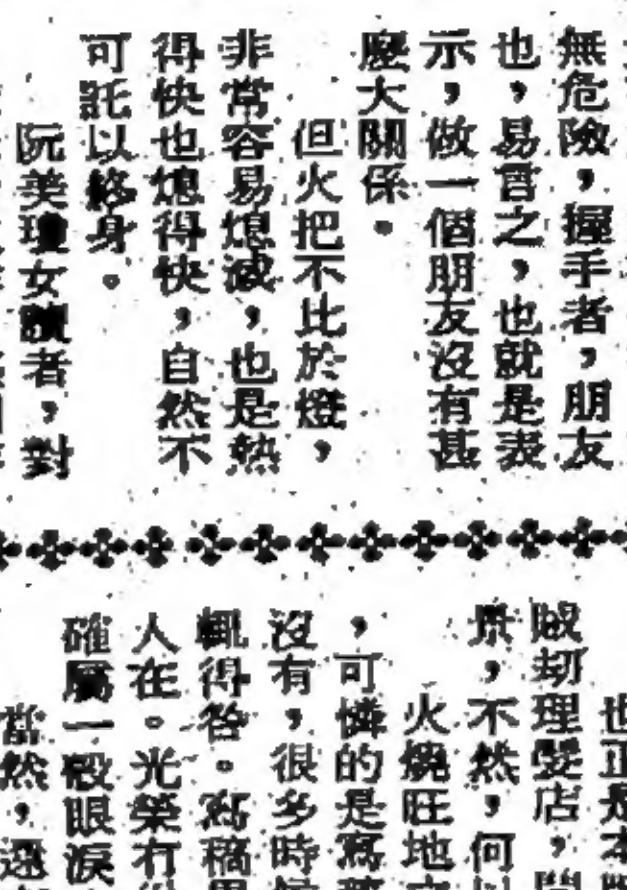 無危險，握手者，朋友
也，易言之，也就是表
示，做一個朋友沒有甚
麼大關係。
但火把不比於燈，
非常容易熄滅，也是熱
得快也熄得快，自然不
可託以終身。
阮美瓊女讀者，對
也正是本
賊劫理髮店，
景，不然，何以
火燒旺地
，可憐的是寫稿
沒有，很多時候
輒得咎。寫稿
人在。光榮冇份
確屬一殼眼淚
當然，還